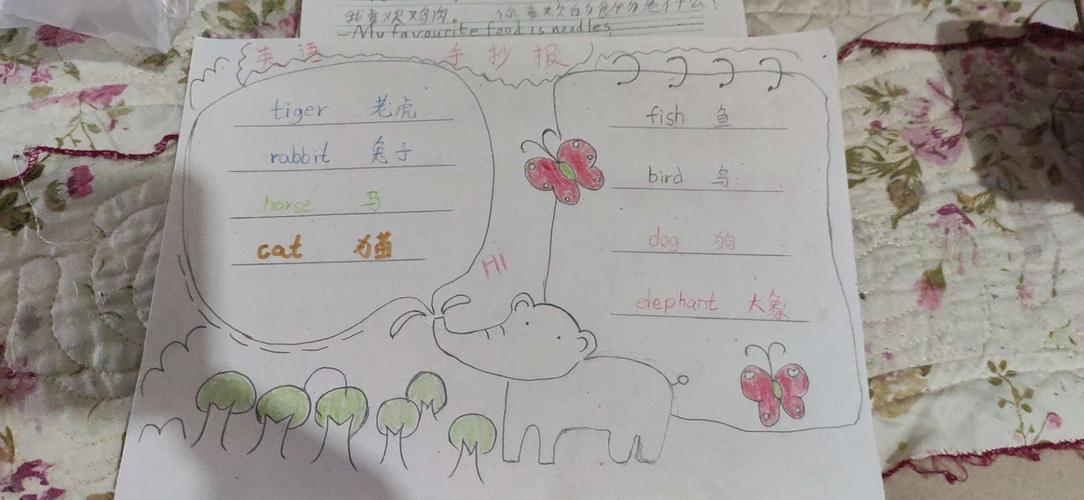 我喜欢鸡肉。 你喜欢的食物是什么？
My favourite food is noodles
英语 手抄报
tiger 老虎
rabbit 兔子
horse 马
cat 猫
Hi
fish 鱼
bird 鸟
dog 狗
elephant 大象